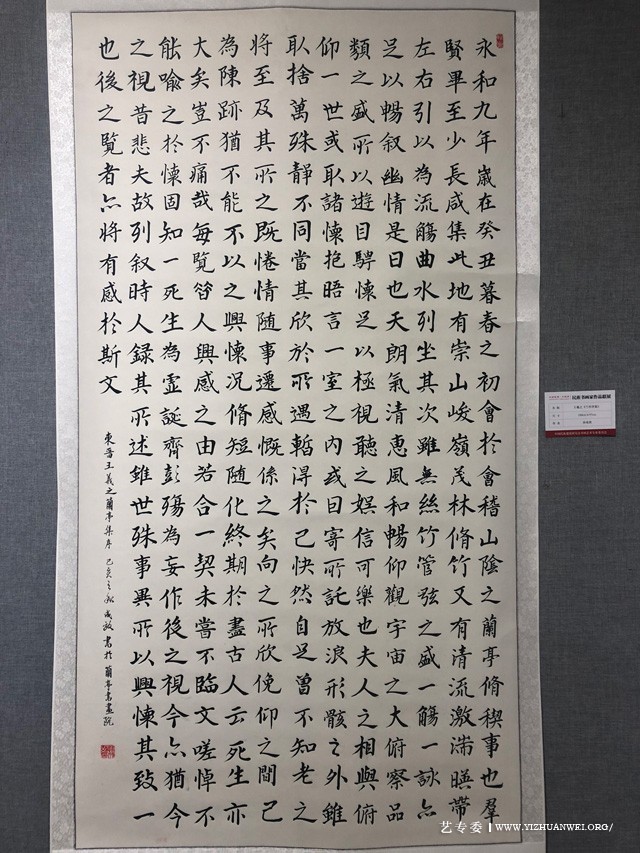 永和九年歲在癸丑暮春之初會於會稽山陰之蘭亭脩稧事也羣
賢畢至少長咸集此地有崇山峻嶺茂林脩竹又有清流激湍暎帶
左右引以為流觴曲水列坐其次雖無絲竹管弦之盛一觴一詠亦
足以暢叙幽情是日也天朗氣清惠風和暢仰觀宇宙之大俯察品
類之盛所以遊目騁懷足以極視聽之娛信可樂也夫人之相與俯
仰一世或取諸懷抱晤言一室之內或曰寄所託放浪形骸之外雖
取捨萬殊靜不同當其欣於所遇暫得於己快然自足曾不知老之
將至及其所之既惓情隨事遷感慨係之矣向之所欣俛仰之間已
為陳跡猶不能不以之興懷況脩短隨化終期於盡古人云死生亦
大矣豈不痛哉每覽昝人興感之由若合一契未嘗不臨文嗟悼不
能喻之於懷固知一死生為虛誕齊彭殤為妄作後之視今亦猶今
之視昔悲夫故列叙時人錄其所述雖世殊事異所以興懷其致一
也後之覽者亦將有感於斯文
東晉王羲之蘭亭集序 己亥之秋 書於蘭亭書畫院
艺专委 | WWW.YIZHUANWEI.ORG/